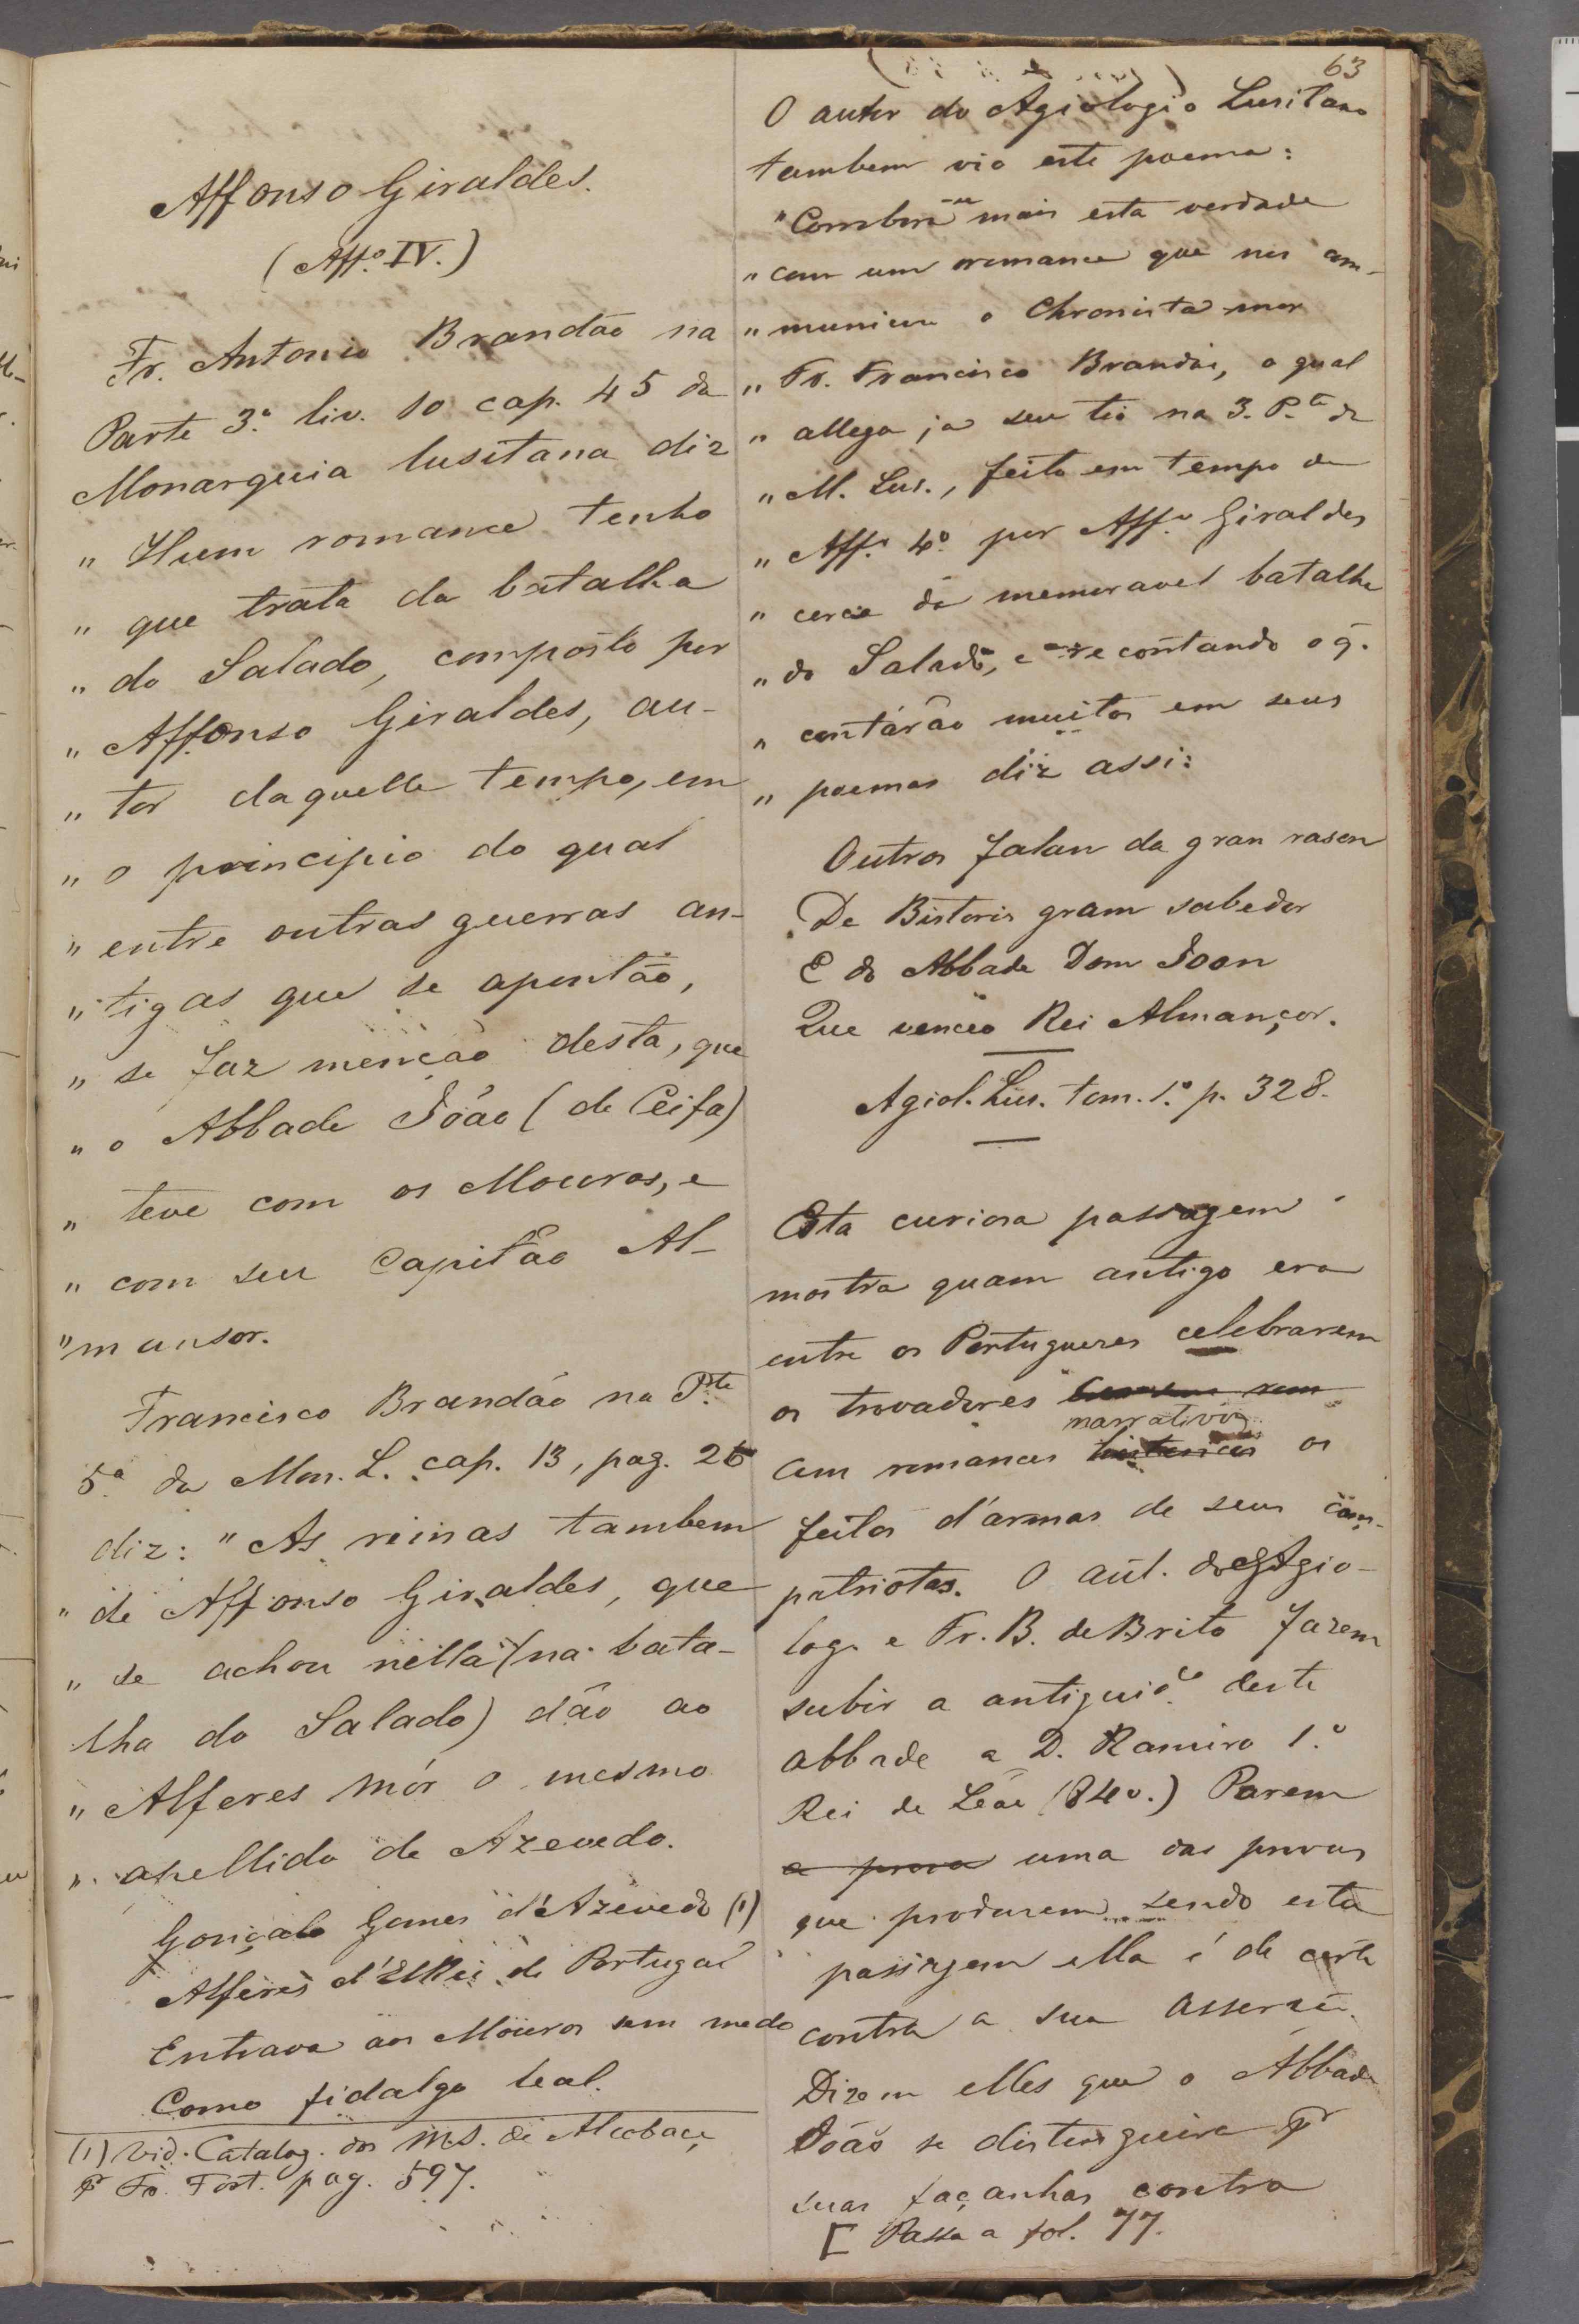 63
Affonso Giraldes.
(Aff.º IV.)
Fr. Antonio Brandão na
Parte 3.ª liv. 10 cap. 45 da
Monarquia lusitana diz
" Hum romance tenho
" que trata da batalha
" do Salado, composto por
" Affonso Giraldes, au-
" tor daquelle tempo, em
" o principio do qual
" entre outras guerras an-
" tigas que se apontão,
" se faz menção desta, que
" o Abbade João (de Ceifa)
" teve com os Mouros, e
" com seu Capitão Al-
" mansor.
Francisco Brandão na P.te
5.ª da Mon. L. cap. 13, pag. 26
diz: " As reinas tambem
" de Affonso Giraldes, que
" se achou nella (na bata-
lha do Salado) dão ao
" Alferes Mór o mesmo
" apellido de Azevedo.
Gonçalo Gomes d'Azevedo (1)
Alferes d'ElRei de Portugal
Entrava aos Mouros sem medo
Como fidalgo leal.
(1) Vid. Catalog. dos M.S. de Alcobaça
pr Fr. Fort. pag. 597.
O autor do Agiologio Lusitano
tambem vio este poema:
" Combina-se mais esta verdade
" com um romance que nos com-
" municou o Chronista mor
" Fr. Francisco Brandão, o qual
" allega já seu tio na 3. P.te da
" M. Lus., feito em tempo de
" Aff.º 4.º por Aff.º Giraldes
" cerca da memoravel batalha
" do Salado, e recontando o q.
" contárão muitos em seus
" poemas diz assi:
Outros falan da gran rason
De Bistoris gram sabedor
E do Abbade Dom Joon
Que venceo Rei Almançor.
Agiol. Lus. tom. 1.º p. 328.
Esta curiosa passagem
mostra quam antigo era
entre os Portuguezes celebrarem
os trovadores
narrativos
com romances historicos os
feitos d'armas de seus com-
patriotas. O aut. do Agio-
log. e Fr. B. de Brito fazem
subir a antiguid.e deste
abbade a D. Ramiro 1.º
Rei de Leão (840.) Porem
a prova uma das provas
que produzem sendo esta
passagem ella é de certo
contra a sua asserção.
Dizem elles que o Abbade
João se distinguira pr
suas façanhas contra
[ Passa a fol. 77.